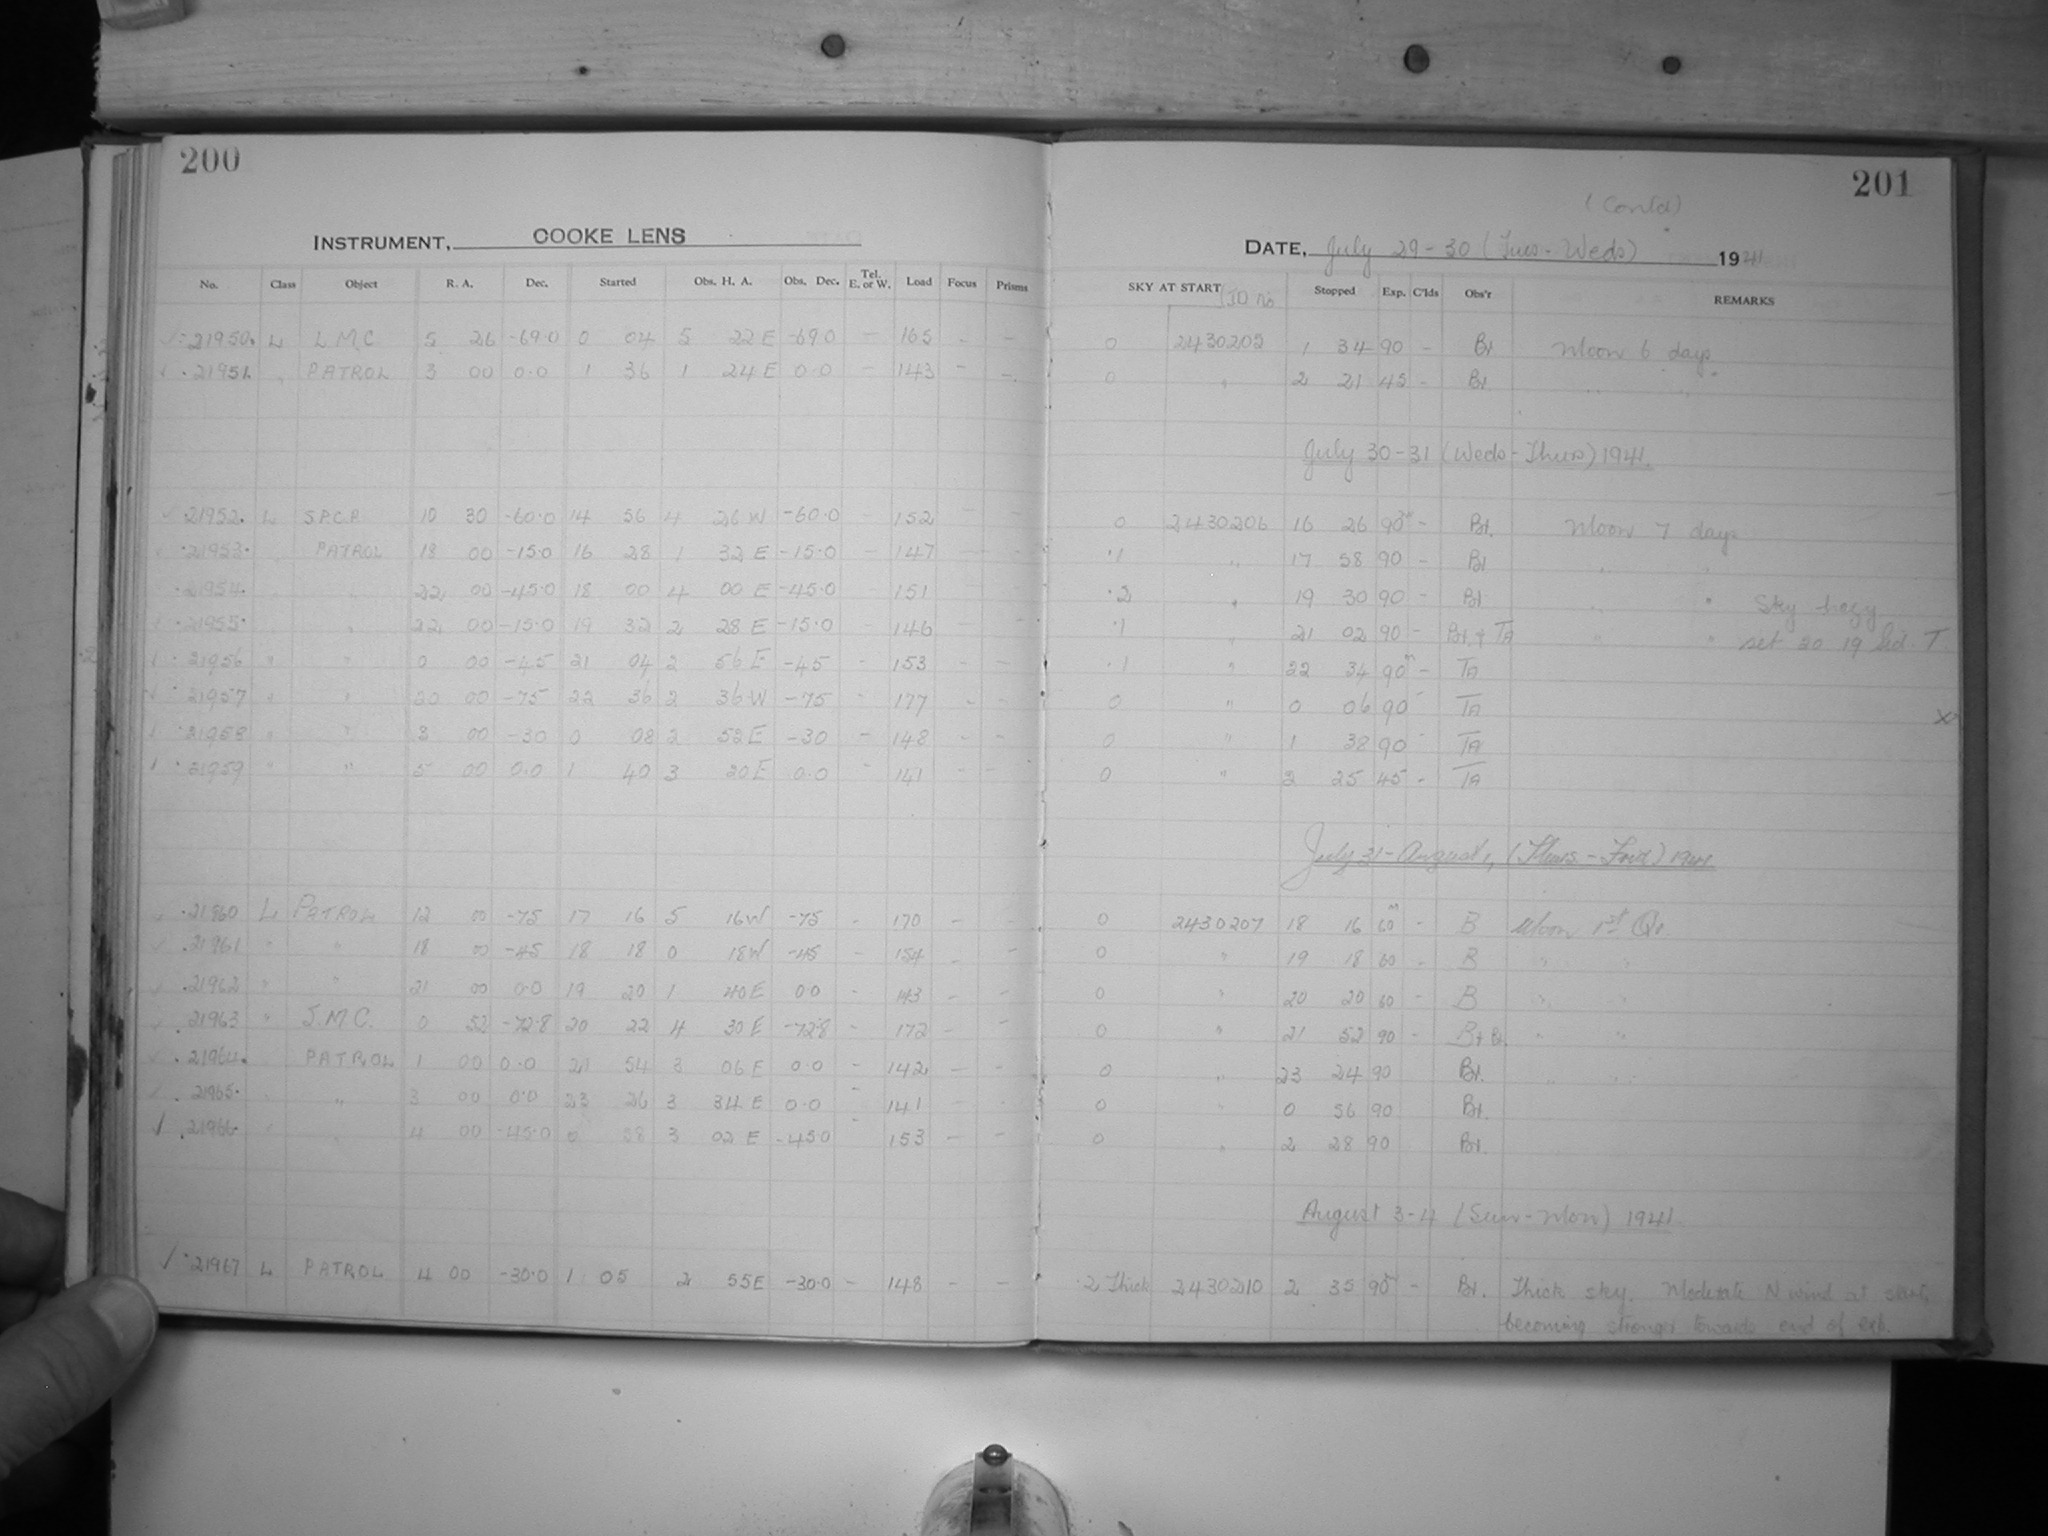 200
INSTRUMENT, COOKE LENS
No. Class Object R. A. Dec. Started Obs. H. A. Obs. Dec. Tel. E. or W. Load Focus Prisms
21950. L L.M.C. 5 26 -69.0 0 04 5 22 E -69.0 - 165 - -
21951. " PATROL 3 00 0.0 1 36 1 24 E 0.0 - 143 - -
21952. L S.P.C.R. 10 30 -60.0 14 56 4 26 W -60.0 - 152 - -
21953. " PATROL 18 00 -15.0 16 28 1 32 E -15.0 - 147 - -
21954. " 22 00 -45.0 18 00 4 00 E -45.0 151
21955. " 22 00 -15.0 19 32 2 28 E -15.0 146
21956 " " 0 00 -45 21 04 2 56 E -45 - 153 - -
21957 " " 20 00 -75 22 36 2 36 W -75 - 177 - -
21958 " " 3 00 -30 0 08 2 52 E -30 - 148 - -
21959 " " 5 00 0.0 1 40 3 20 E 0.0 - 141 - -
21960 L PATROL 12 00 -75 17 16 5 16 W -75 - 170 - -
21961 " " 18 00 -45 18 18 0 18 W -45 - 154 - -
21962 " " 21 00 0.0 19 20 1 40 E 0.0 - 143 - -
21963 " S.M.C. 0 52 -72.8 20 22 4 30 E -72.8 - 172 - -
21964. PATROL 1 00 0.0 21 54 3 06 E 0.0 - 142 - -
21965. " 3 00 0.0 23 26 3 34 E 0.0 - 141 - -
21966. " 4 00 -45.0 0 58 3 02 E -45.0 - 153 - -
21967 L PATROL 4 00 -30.0 1 05 2 55 E -30.0 - 148 - -
201
(Contd)
DATE, July 29-30 (Tues-Weds) 1941
SKY AT START JD no Stopped Exp. C'lds Obs'r REMARKS
0 2430205 1 34 90 - Bt Moon 6 days
0 " 2 21 45 - Bt. " "
July 30-31 (Weds-Thurs) 1941.
0 2430206 16 26 90m - Bt. Moon 7 days
.1 " 17 58 90 - Bt " "
.2 " 19 30 90 - Bt " " Sky hazy
.1 " 21 02 90 - Bt. & TA " " set 20 19 Sid. T
.1 " 22 34 90m - TA
0 " 0 06 90 - TA x
0 " 1 38 90 - TA
0 " 2 25 45 - TA
July 31-August 1, (Thurs-Frid) 1941
0 2430207 18 16 60m - B Moon 1st Qr.
0 " 19 18 60 - B " "
0 " 20 20 60 - B " "
0 " 21 52 90 - B & Bt. " "
0 " 23 24 90 Bt. " "
0 " 0 56 90 Bt.
0 " 2 28 90 Bt.
August 3-4 (Sun-Mon) 1941.
.2 Thick 2430210 2 35 90m - Bt. Thick sky. Moderate N wind at start,
becoming stronger towards end of exp.